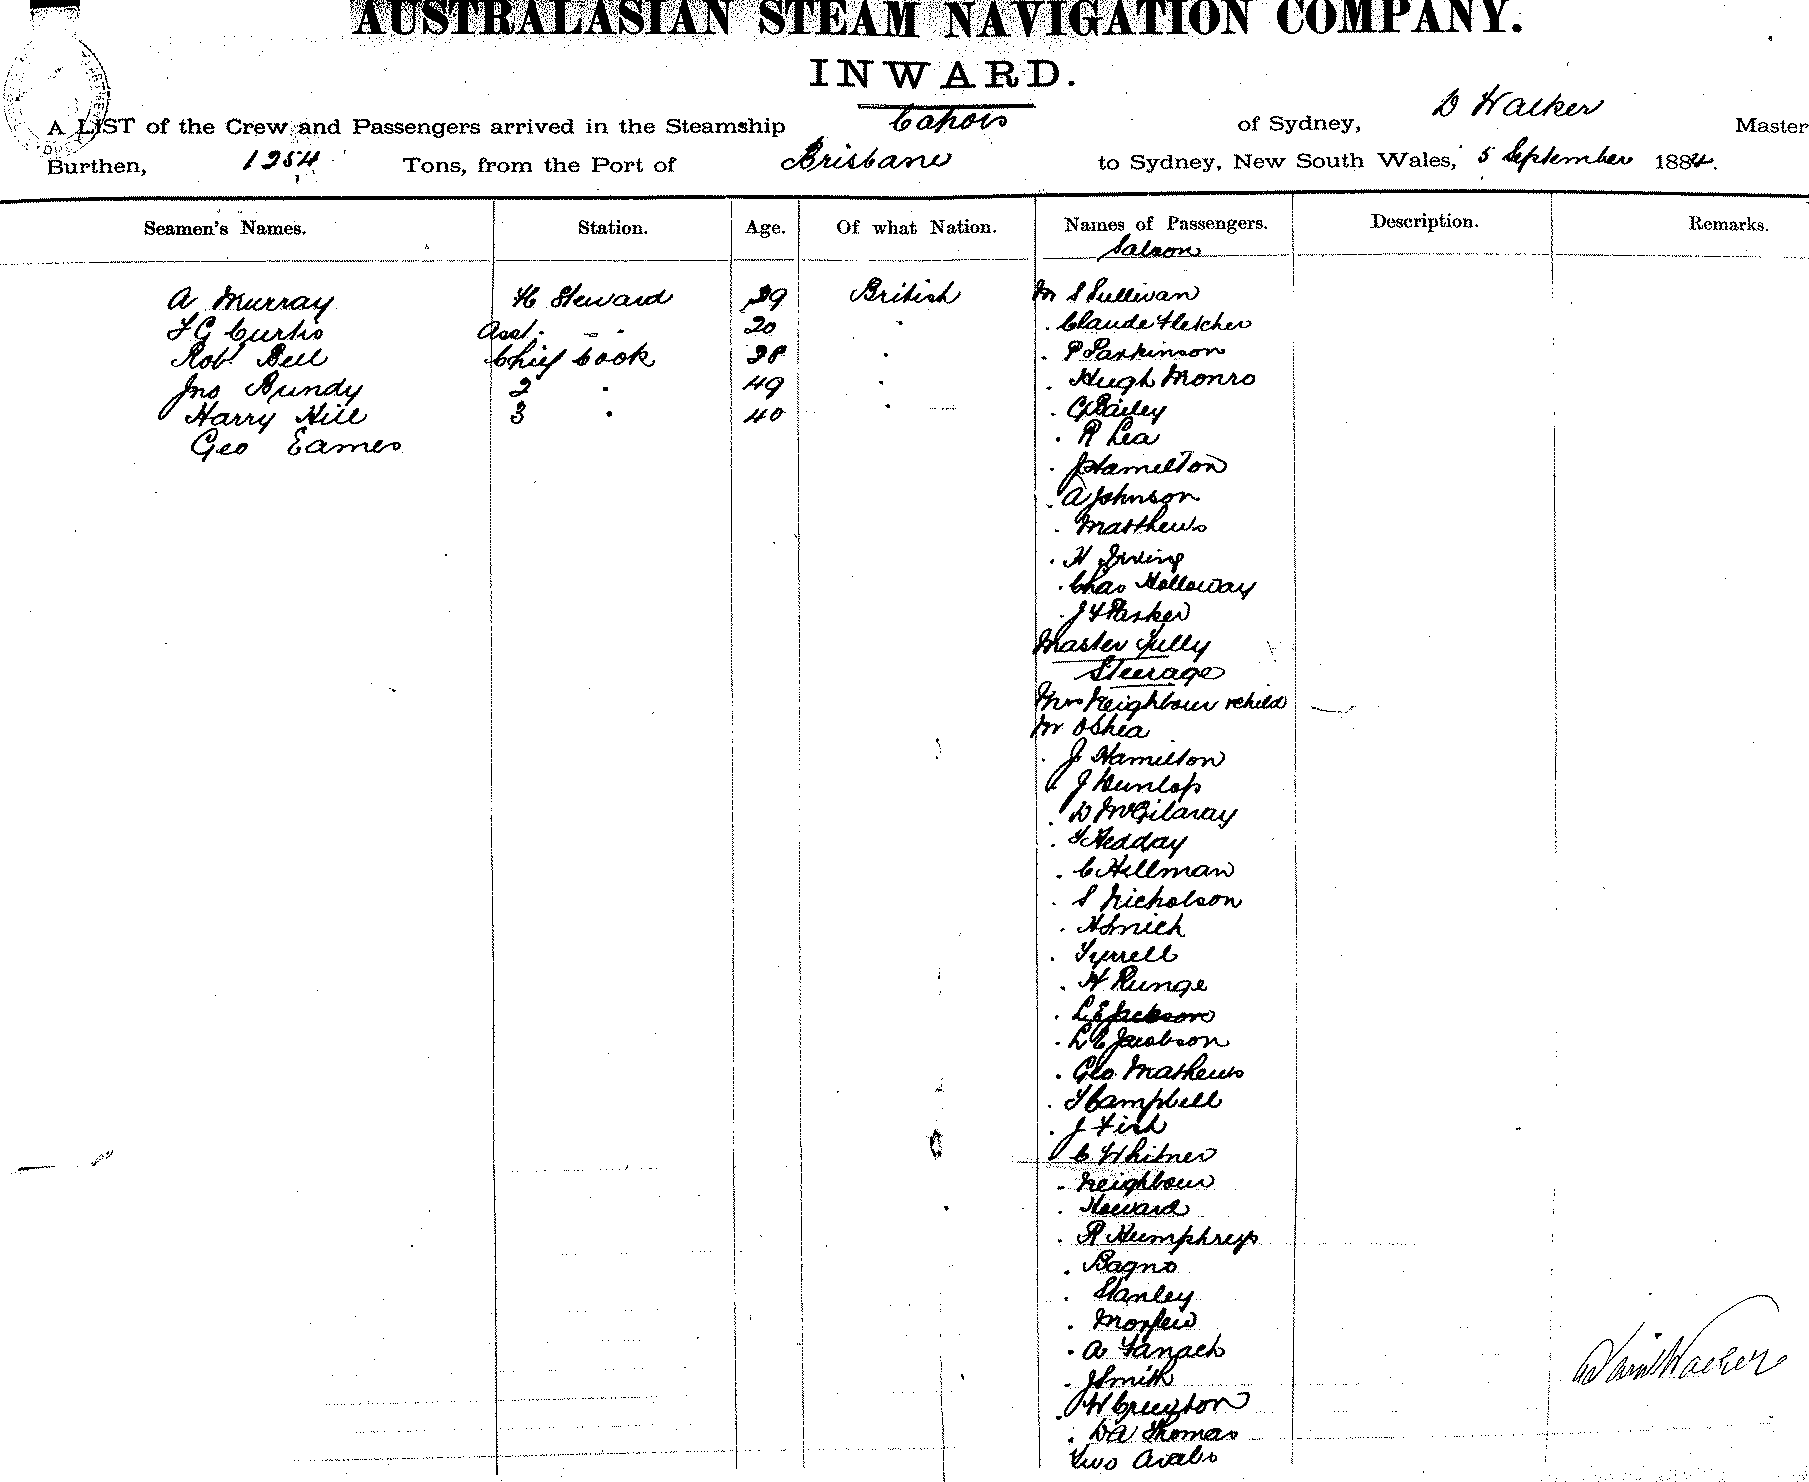 AUSTRALASIAN STEAM NAVIGATION COMPANY.
INWARD.
A LIST of the Crew and Passengers arrived in the Steamship Cahors of Sydney, D Walker Master
Burthen, 1254 Tons, from the Port of Brisbane to Sydney, New South Wales, 5 September 1884.
Seamen's Names. Station. Age. Of what Nation. Names of Passengers. Description. Remarks.
Saloon
A Murray H Steward 29 British Mr S Sullivan
F G Curtis Asst. - " 20 " . Claude Fletcher
Robt Bell Chief Cook 28 " . P Parkinson
Jno Bundy 2 " 49 " . Hugh Monro
Harry Hill 3 " 40 " . G Bailey
Geo Eames . R Lea
. J Hamilton
. A Johnson
. Matthews
. H Irving
. Chas Holloway
. J F Parker
Master Tully
Steerage
Mrs Neighbour & child
Mr OShea
. J Hamilton
. J Dunlop
. D McGilvray
. F Hedday
. C Hillman
. S Nicholson
. H Smith
. Tyrrell
. H Runge
. L E Jackson
. L E Jacobson
. Geo Mathews
. F Campbell
. J Fish
. C Whitner
. Neighbour
. Howard
. R Humphreys
. Bagno
. Stanley
. A Fanach
. J Smith
. W Creyton
. D A Thomas
Two Arabs
David Walker